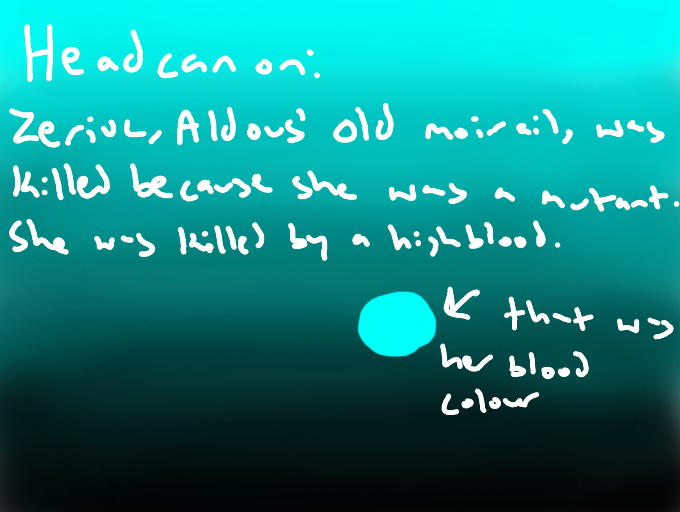 Headcanon:
Zeriuc, Aldous' old moirail, was
killed because she was a mutant.
She was killed by a highblood.
that was
her blood
colour